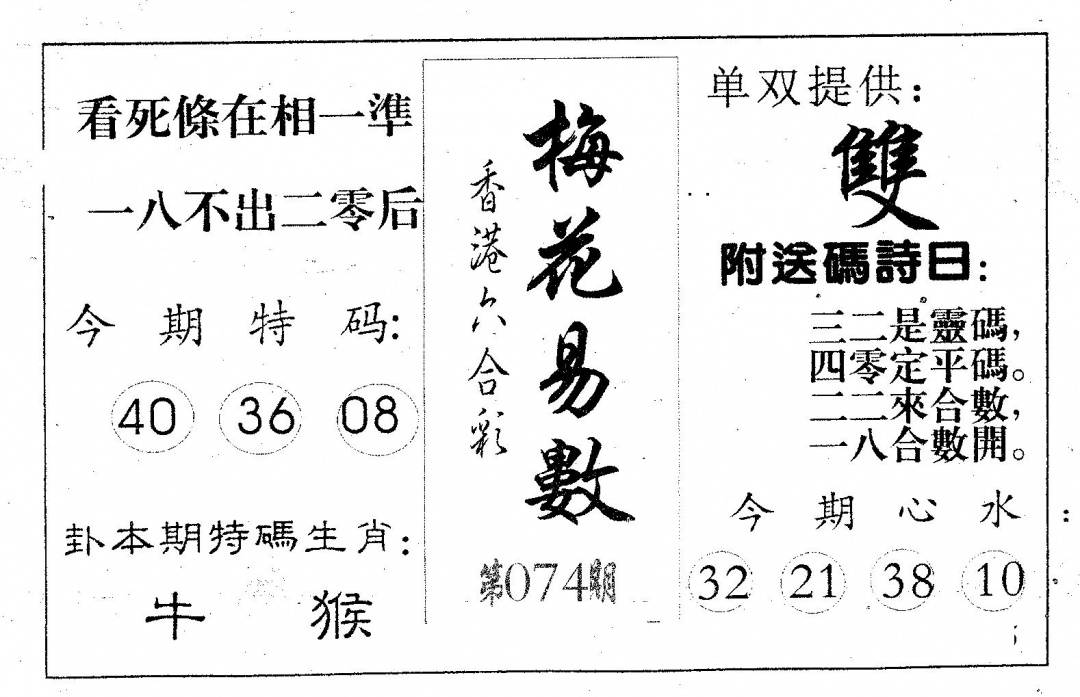 看死條在相一準
一八不出二零后
今期特码:
40 36 08
卦本期特碼生肖:
牛 猴
梅花易數
香港六合彩
第074期
单双提供:
雙
附送碼詩曰:
三二是靈碼,
四零定平碼。
二二來合數,
一八合數開。
今期心水:
32 21 38 10